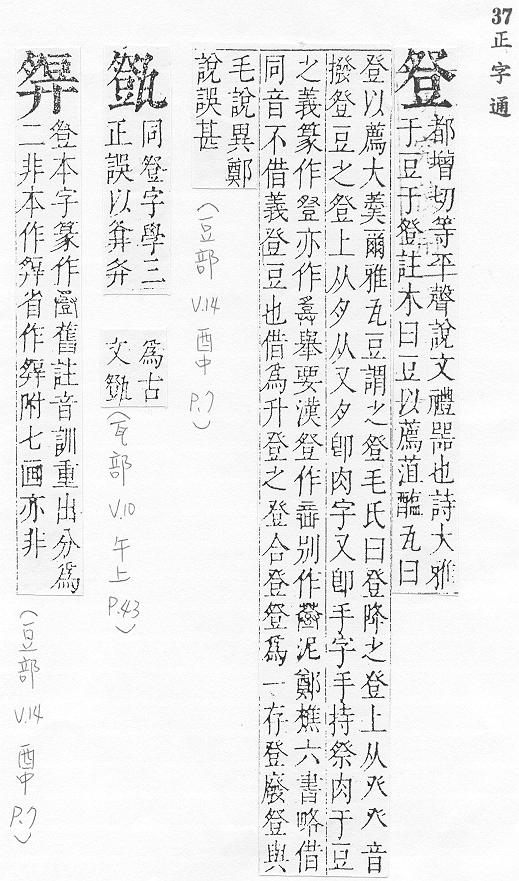 37 正字通
豋 都增切等平聲說文禮器也詩大雅
于豆于豋註木曰豆以薦菹醢瓦曰
登以薦大羹爾雅瓦豆謂之登毛氏曰登降之登上从癶癶音
撥豋豆之豋上从夕从又夕卽肉字又卽手字手持祭肉于豆
之義篆作豋亦作𤼷舉要漢登作𤼷別作䔲泥鄭樵六書略借
同音不借義登豆也借爲升登之登合登豋爲一存登廢豋與
毛說異鄭
說誤甚
(豆部 V.14 酉中 P.7)
同豋字學三
正誤以弇弅
爲古
文
(瓦部 V.10 午上 P.43)
豋本字篆作舊註音訓重出分爲
二非本作省作附七畫亦非
(豆部 V.14 酉中 P.7)